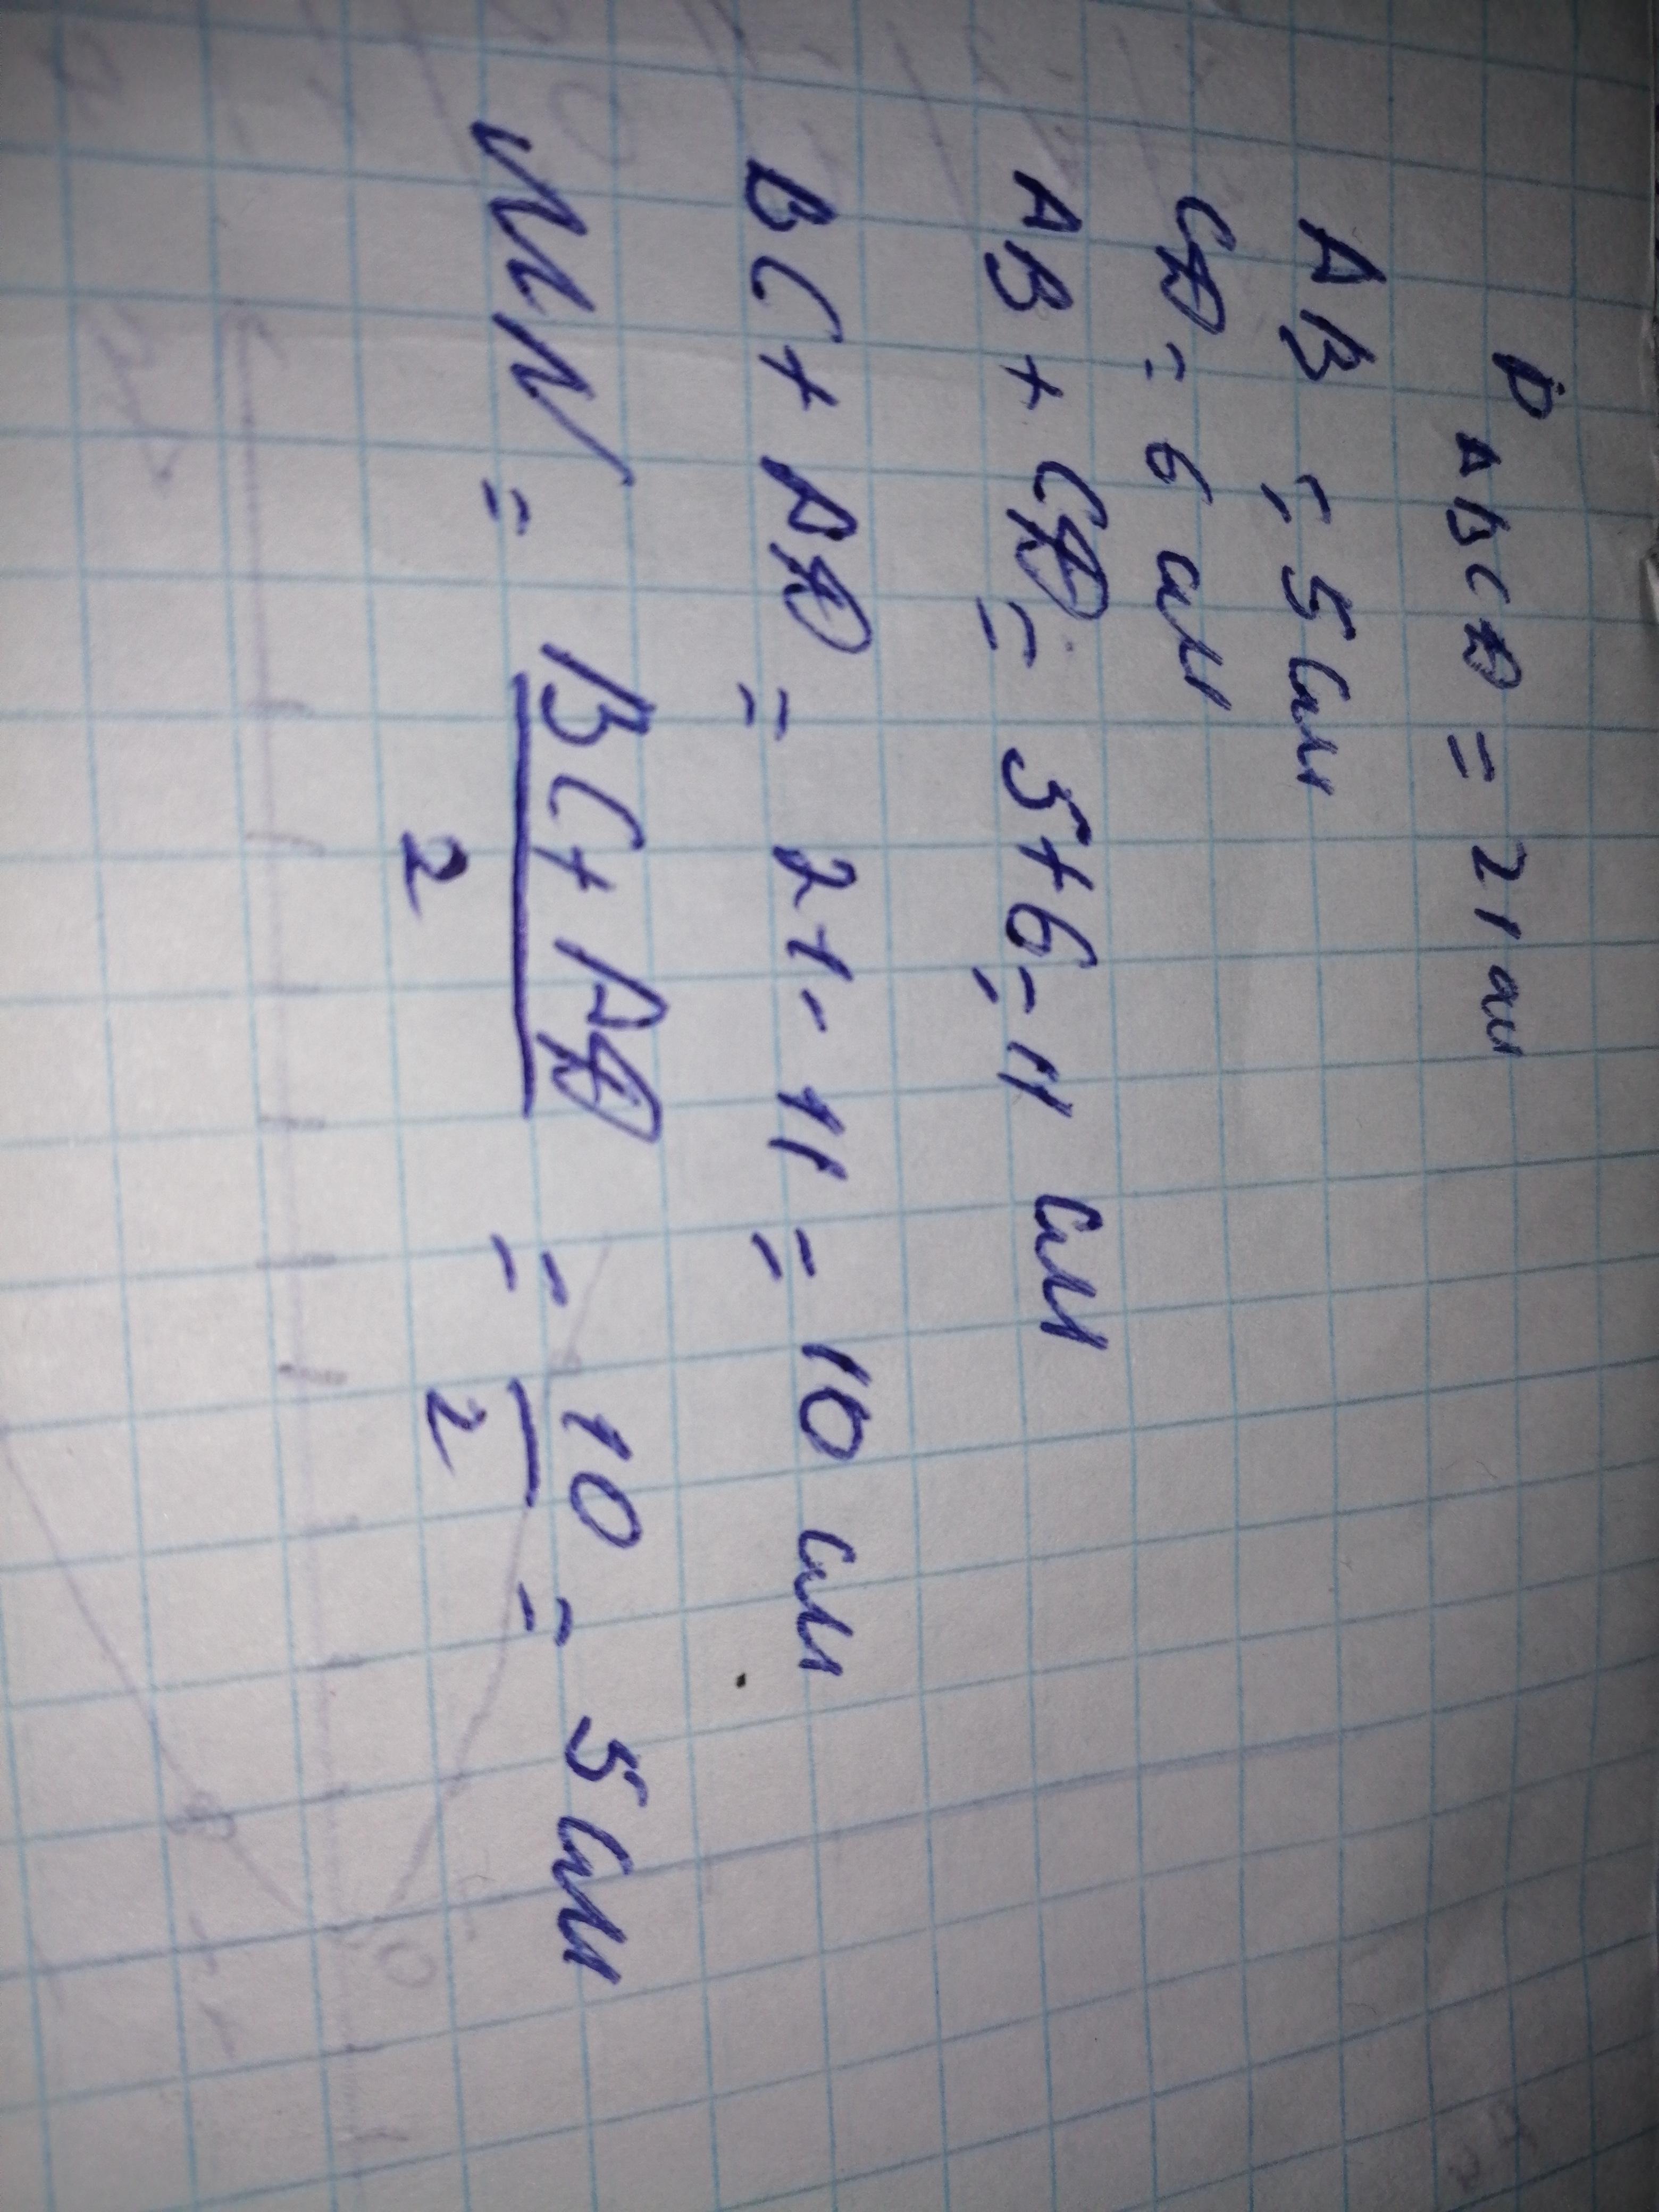 P ABCD = 21 см
AB = 5 см
CD = 6 см
AB + CD = 5+6 = 11 см
BC + AD = 21 - 11 = 10 см
MN = BC + AD / 2 = 10 / 2 = 5 см